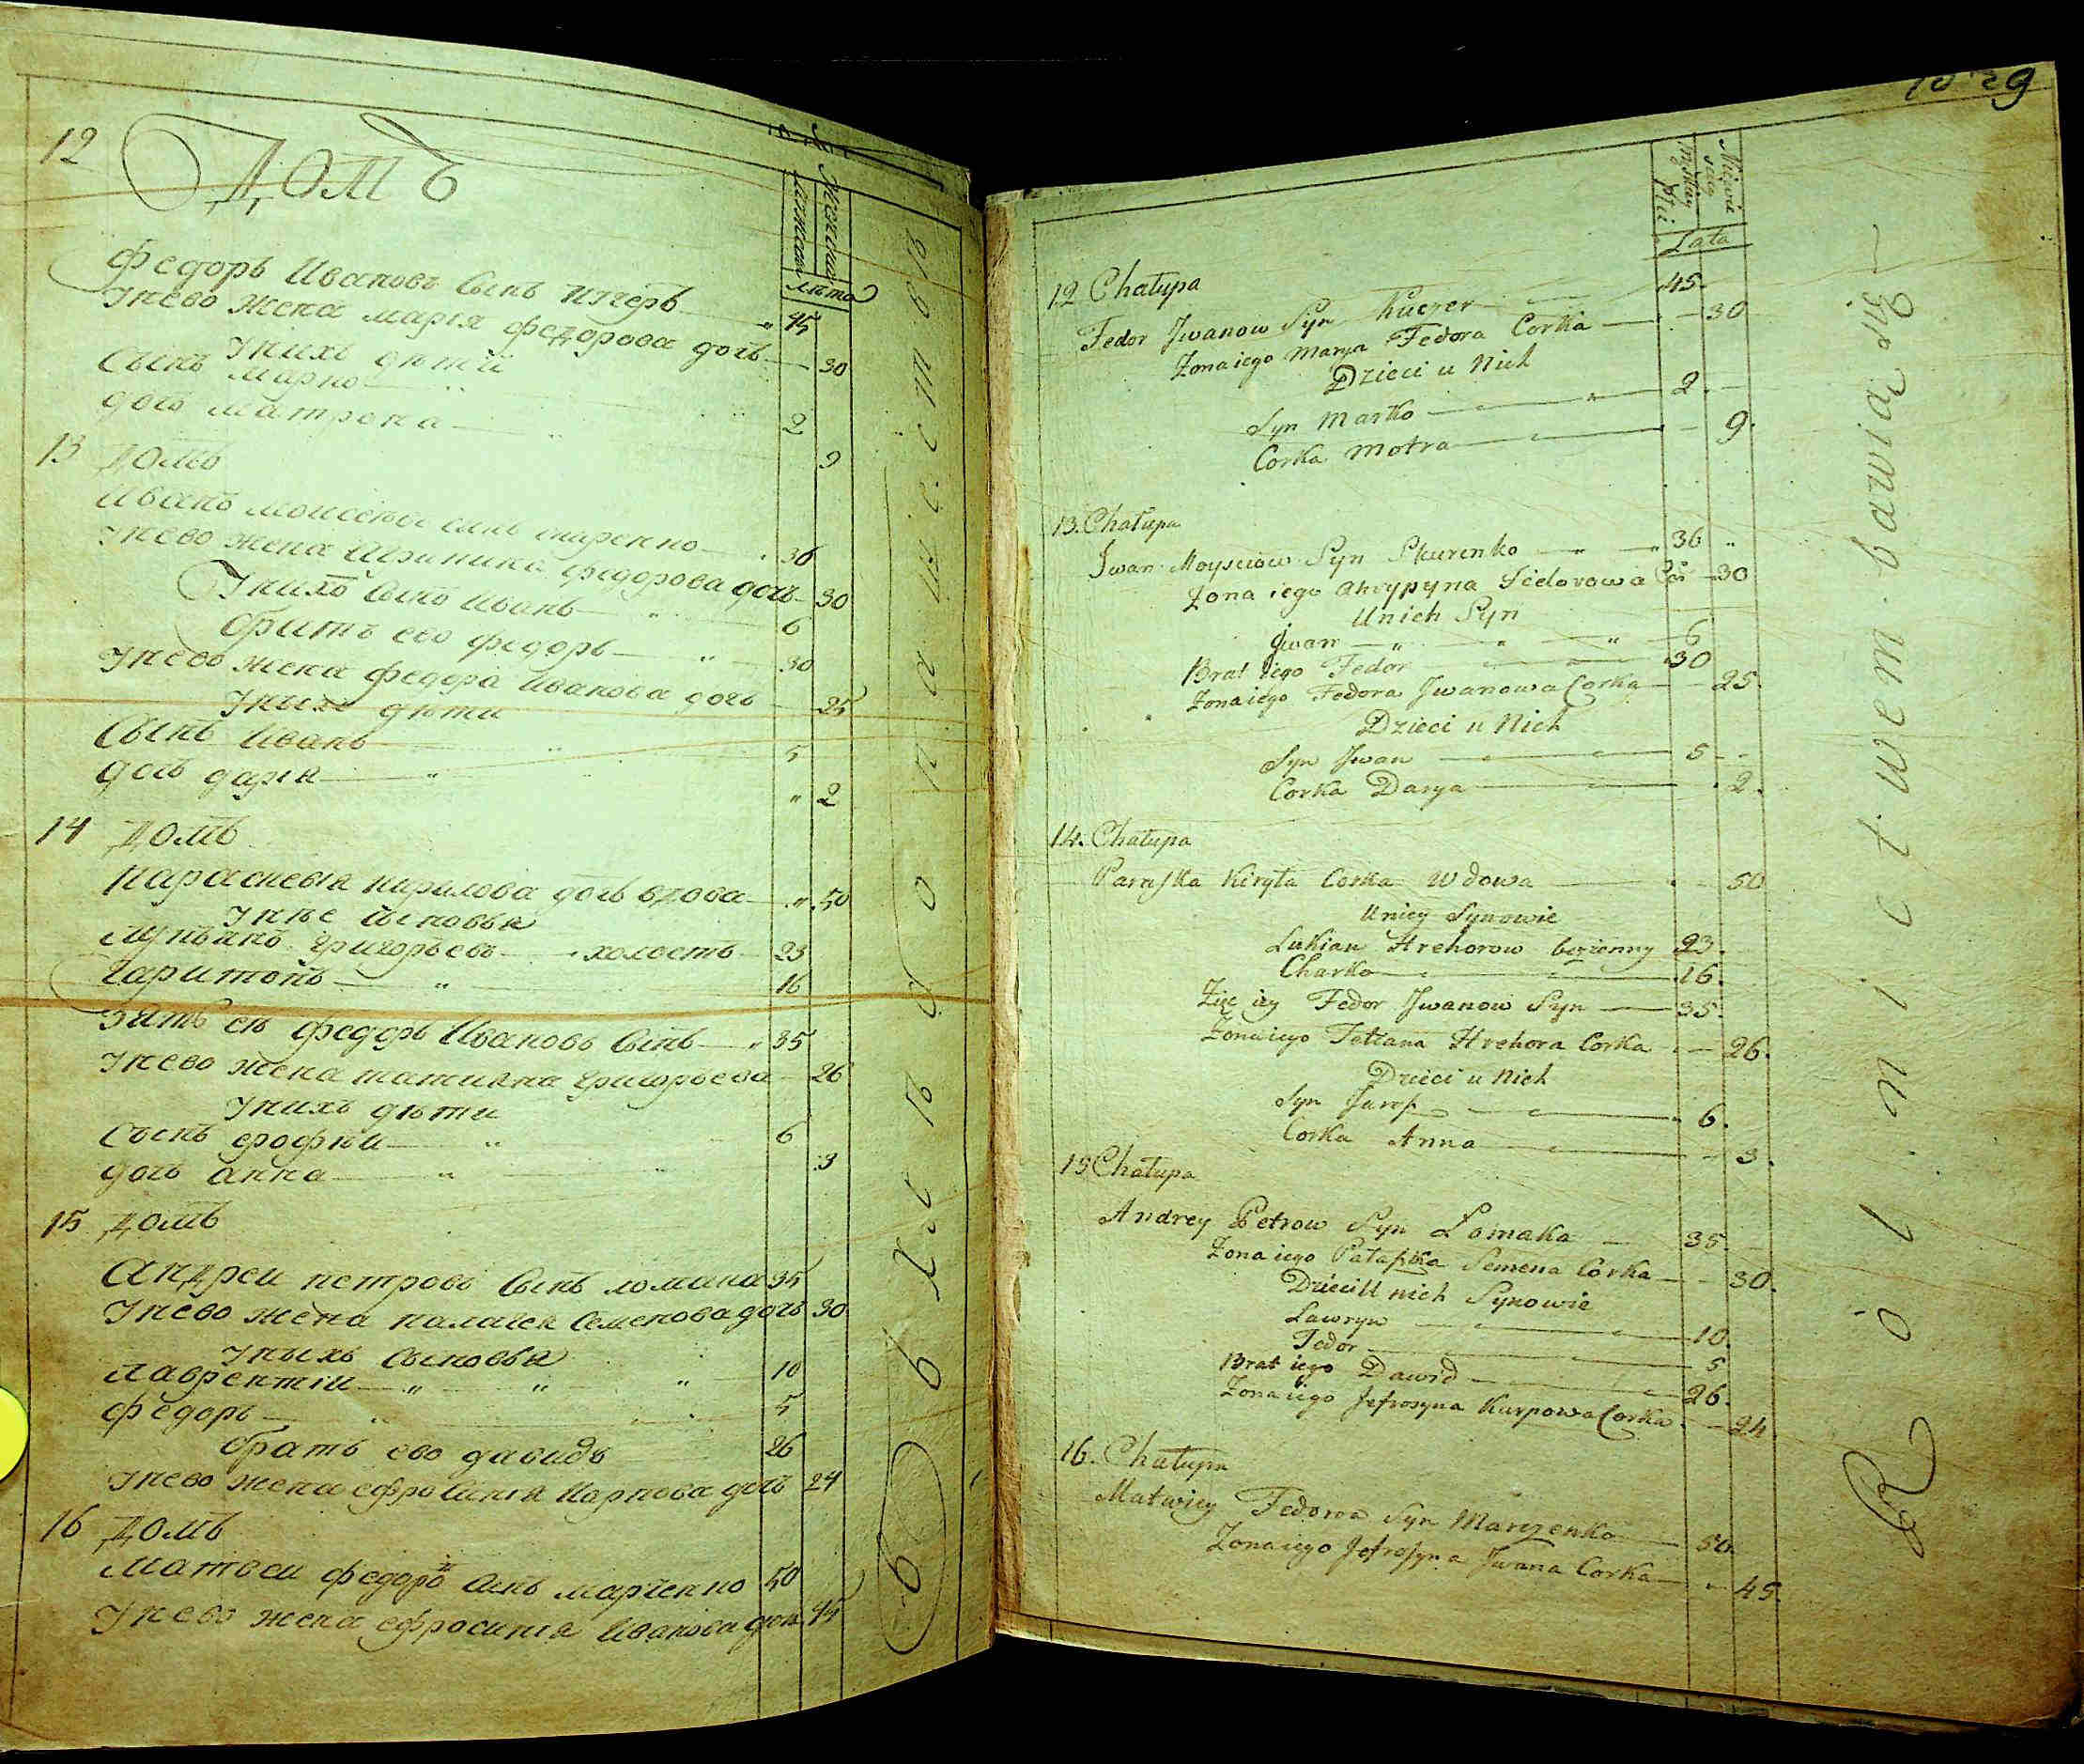 12 Домъ
Женскъ
лѣта
Федоръ Ивановъ сынъ кучеръ 45
У него жена марія федорова дочь 30
У нихъ дѣти
Сынъ марко 2
дочь матрена 9
13 Домъ
Иванъ моисеевъ сынъ 36
У него жена федорова дочь 30
У нихъ сынъ иванъ 6
братъ ево федоръ 30
У нево жена федора иванова дочь 25
У нихъ дѣти
Сынъ иванъ 5
дочь дарія 2
14 Домъ
Параскевія кирилова дочь вдова 50
У нее сыновья
лукьянъ григорьевъ холостъ 23
харитонъ 16
Зять ея федоръ Ивановъ сынъ 35
У нево жена татияна григорьева 26
У нихъ дѣти
Сынъ ерофѣи 6
дочь анна 3
15 Домъ
Андреи петровъ сынъ ломака 35
У нево жена палагея семенова дочь 30
У ныхъ сыновья
лаврентіи 10
федоръ 5
братъ ево давидъ 26
У нево жена ефросинія карпова дочь 24
16 Домъ
Матвеи федоровъ сынъ марченко 50
У нево жена ефросинія иванова дочь 45
29
Lata
12 Chałupa
Fedor Jwanow Syn Kuczer 45
Zona iego Marya Fedora Corka 30
Dzieci u Nich
Syn Marko 2
Corka Motra 9
13. Chałupa
Jwan Moysciow Syn Skurenko 36
Zona iego Ahrypyna Fiedorowa 30
Unich Syn
Jwan 6
Brat iego Fedor 30
Zona iego Fedora Jwanowa Corka 25
Dzieci u Nich
Syn Jwan 5
Corka Darya 2
14. Chałupa
Paraska Kiryła Corka Wdowa 50
Uniey Synowie
Lukian Hrehorow bezżenny 23
Charko 16
Zięć iey Fedor Jwanow Syn 35
Zona iego Tetiana Hrehora Corka 26
Dzieci u Nich
Syn Jarof 6
Corka Anna 3
15 Chałupa
Andrey Petrow Syn Łomaka 35
Zona iego Pałaszka Semena Corka 30
Dzieci U nich Synowie
Ławryn 10
Fedor 5
Brat iego Dawid 26
Zona iego Jefrosyna Karpowa Corka 24
16. Chałupa
Matwiey Fedorow Syn Marczenko 50
Zona iego Jefrosyna Jwana Corka 45
Rólnictwem bawią się